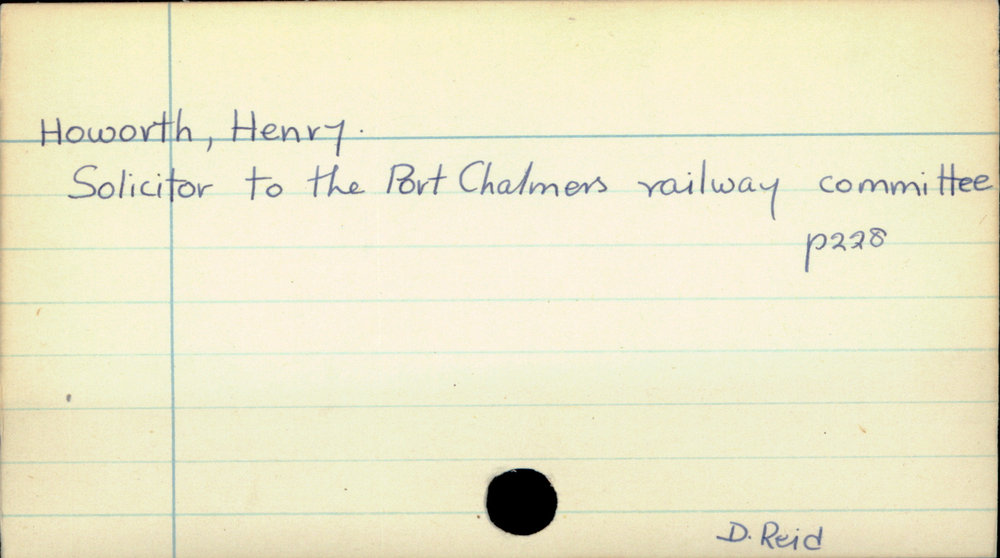 Howorth, Henry.
Solicitor to the Port Chalmers railway committee
p228
D. Reid